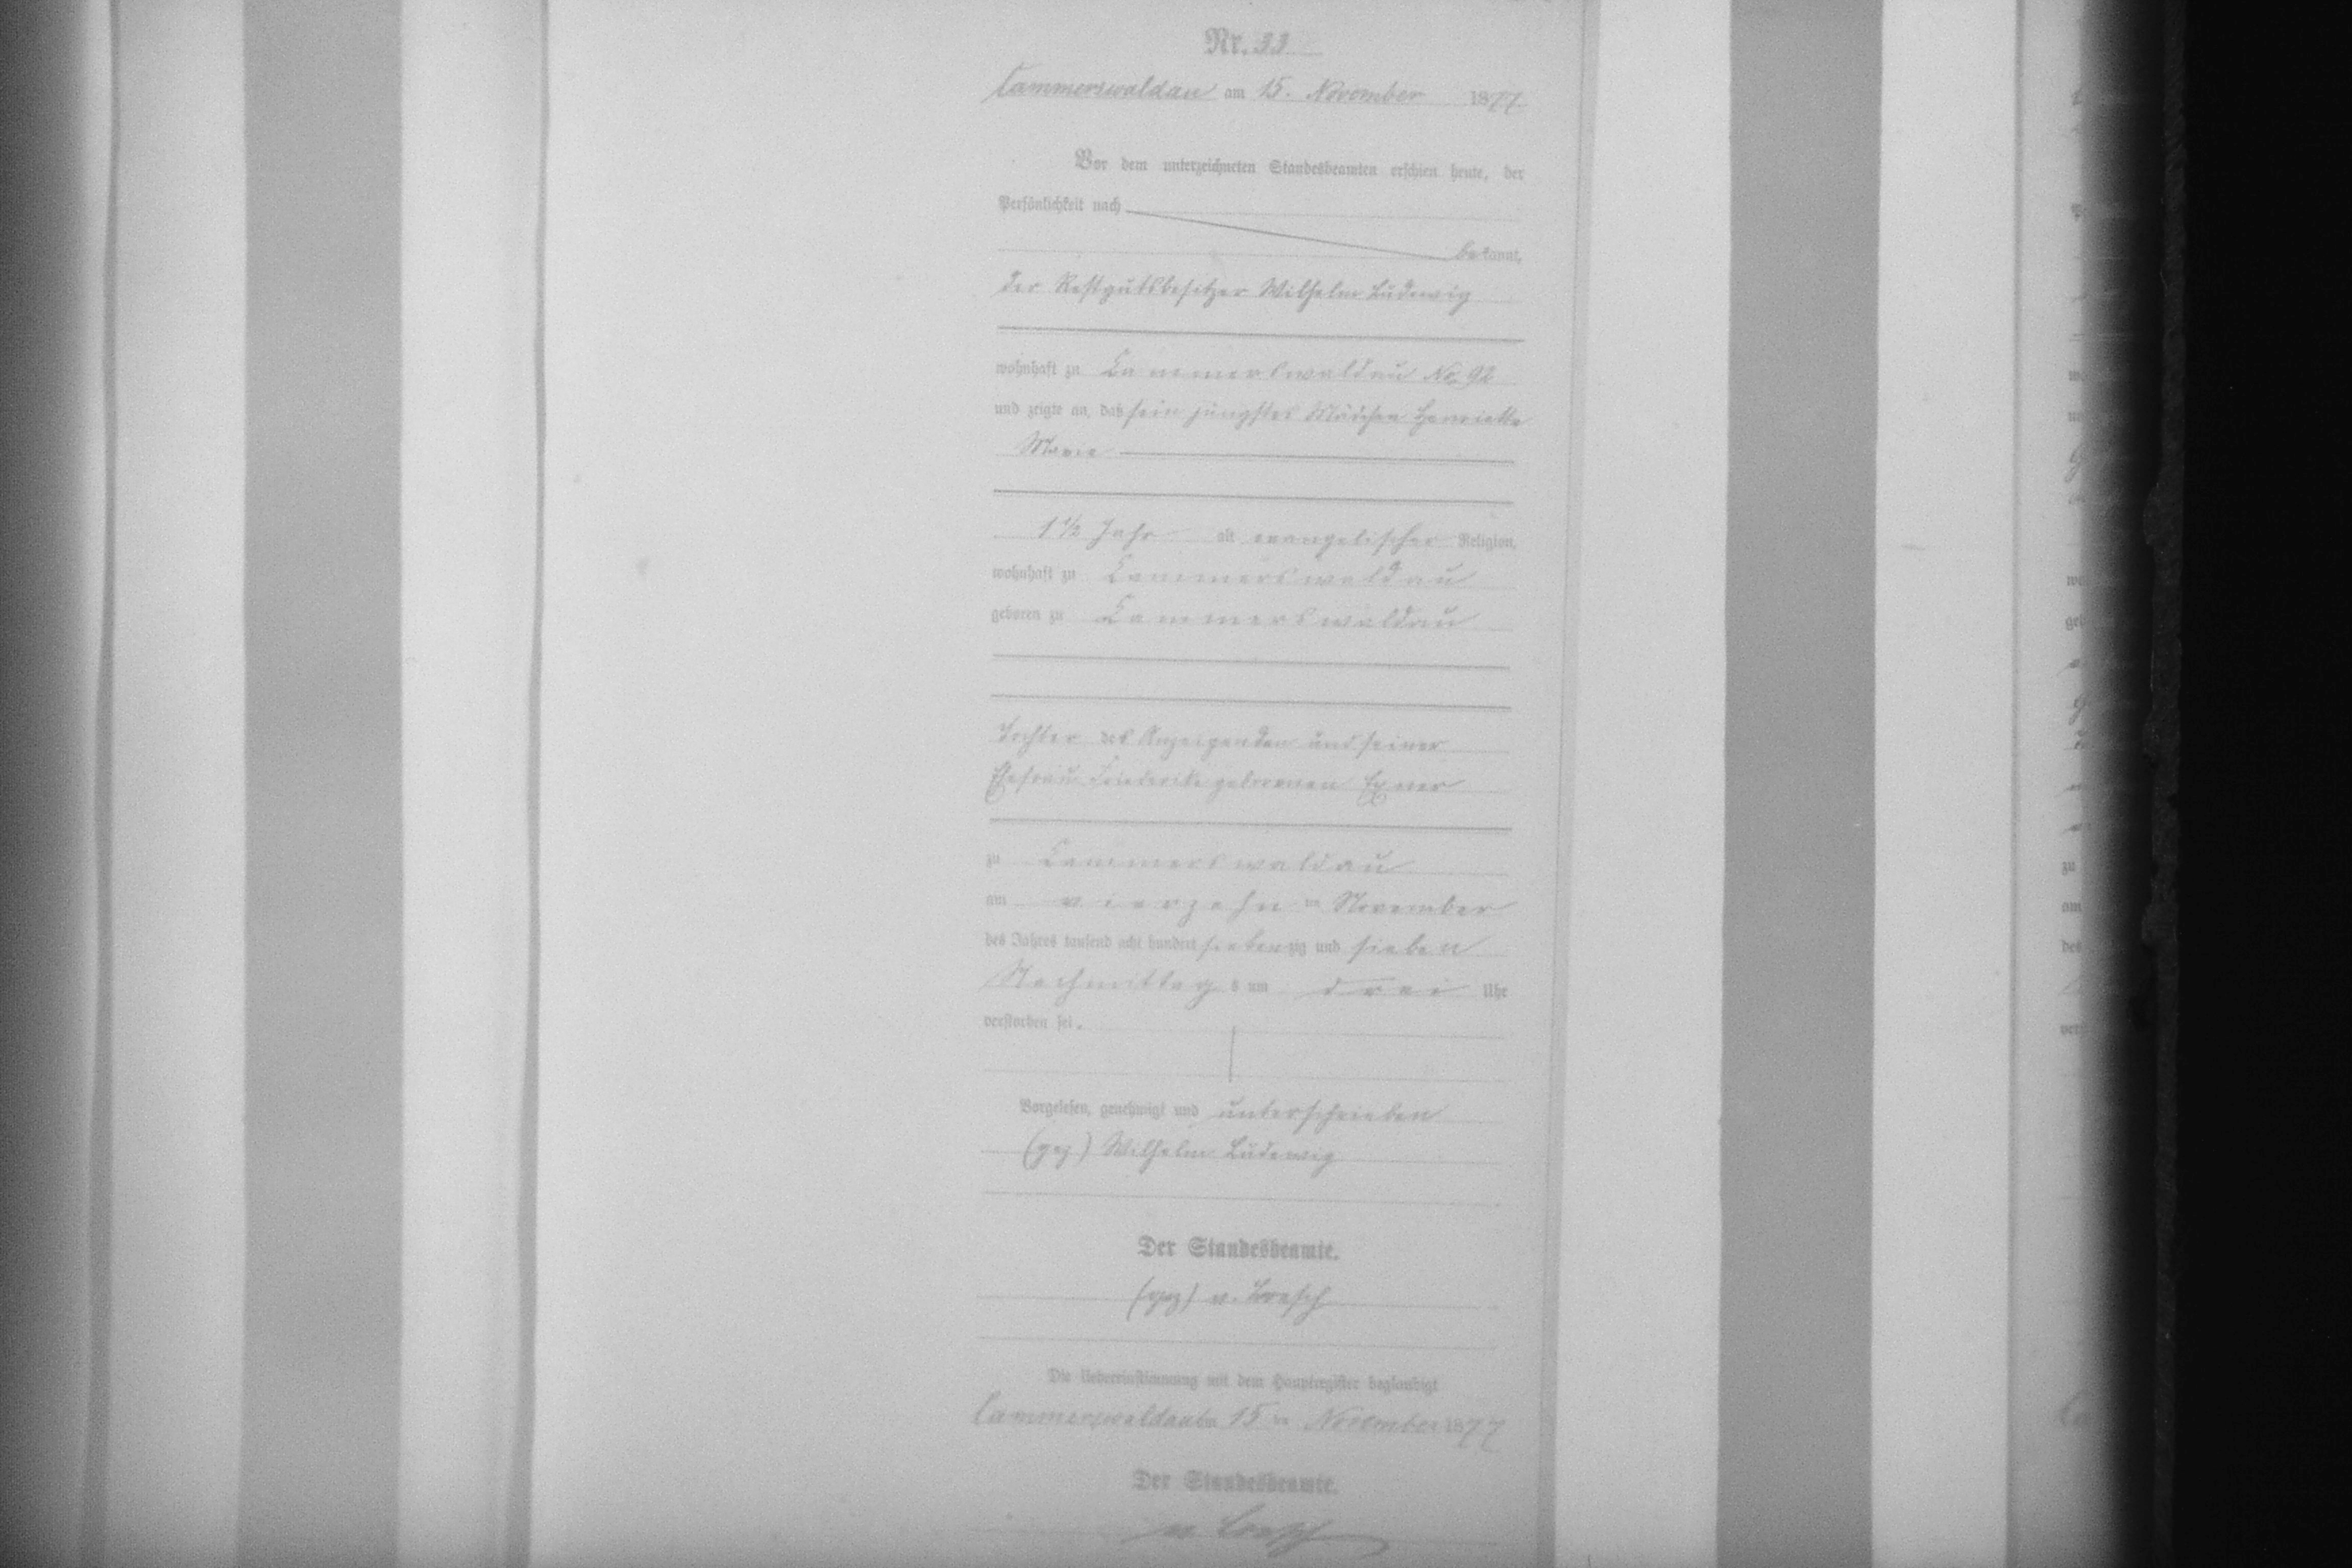 Nr. 33
Cammerswaldau am 15. November 1877
Vor dem unterzeichneten Standesbeamten erschien heute, der
Persönlichkeit nach
bekannt,
der Restgutsbesitzer Wilhelm Ludewig
wohnhaft zu Cammerswaldau No 92
und zeigte an, daß sein jüngstes Mädchen Henriette
Marie
1 1/2 Jahr alt evangelischer Religion,
wohnhaft zu Cammerswaldau
geboren zu Cammerswaldau
Tochter des Anzeigenden und seiner
Ehefrau Friederike geborenen Exner
zu Cammerswaldau
am vierzehn ten November
des Jahres tausend acht hundert siebenzig und sieben
Nachmittags um drei Uhr
verstorben sei.
Vorgelesen, genehmigt und unterschrieben
(gez) Wilhelm Ludewig
Der Standesbeamte.
(gez) v.
Die Uebereinstimmung mit dem Hauptregister beglaubigt
Cammerswaldau am 15 ten November 1877
Der Standesbeamte.
v.